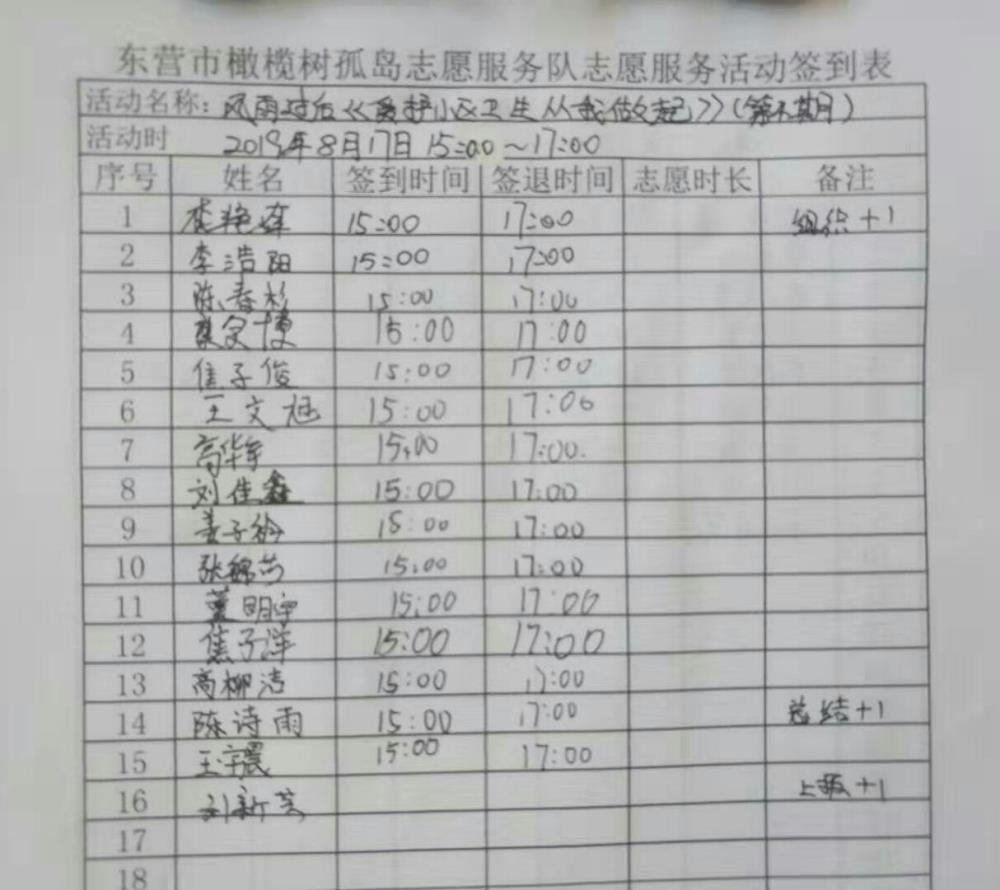 东营市橄榄树孤岛志愿服务队志愿服务活动签到表
活动名称：风雨过后《爱护小区卫生从我做起》（第期）
活动时 2019年8月17日 15:00～17:00
序号 姓名 签到时间 签退时间 志愿时长 备注
1 15:00 17:00 组织+1
2 李浩阳 15:00 17:00
3 陈春杉 15:00 17:00
4 15:00 17:00
5 焦子俊 15:00 17:00
6 王文旭 15:00 17:06
7 高华宇 15:00 17:00.
8 刘佳鑫 15:00 17:00
9 15:00 17:00
10 张锦芳 15:00 17:00
11 董明宇 15:00 17:00
12 焦子洋 15:00 17:00
13 高柳洁 15:00 17:00
14 陈诗雨 15:00 17:00 总结+1
15 王宇晨 15:00 17:00
16 刘新芳 上报+1
17
18